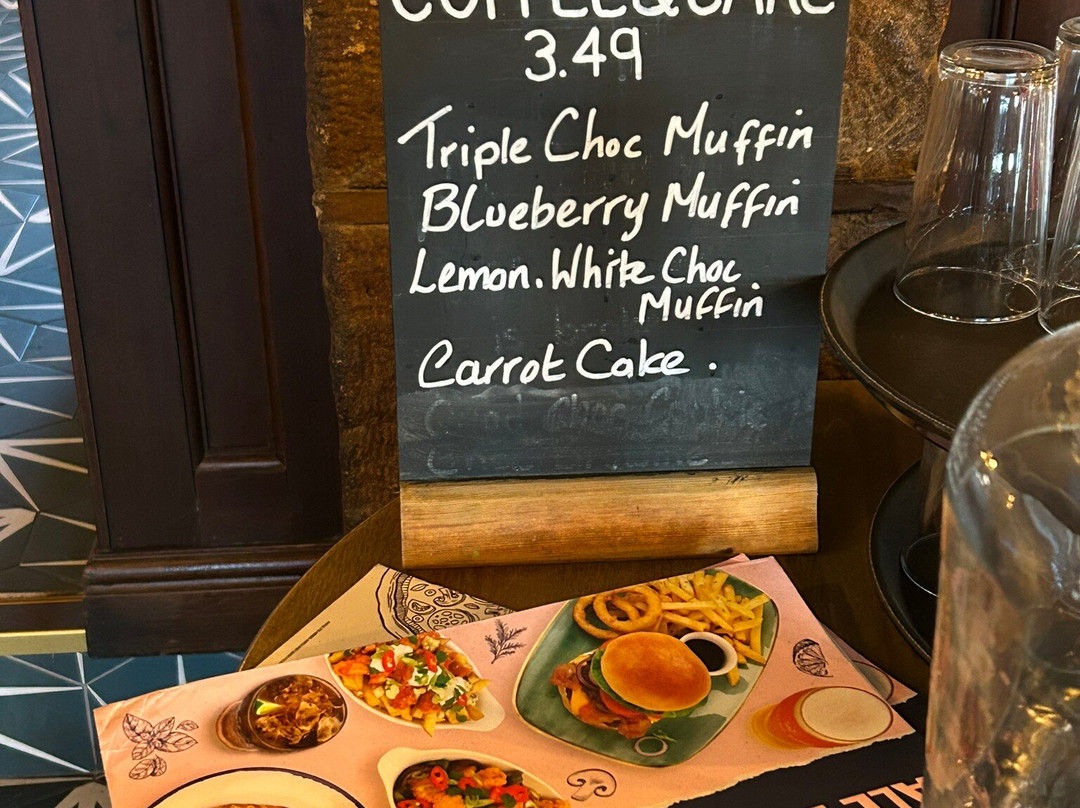 COFFEE & CAKE
3.49
Triple Choc Muffin
Blueberry Muffin
Lemon. White Choc
Muffin
Carrot Cake.